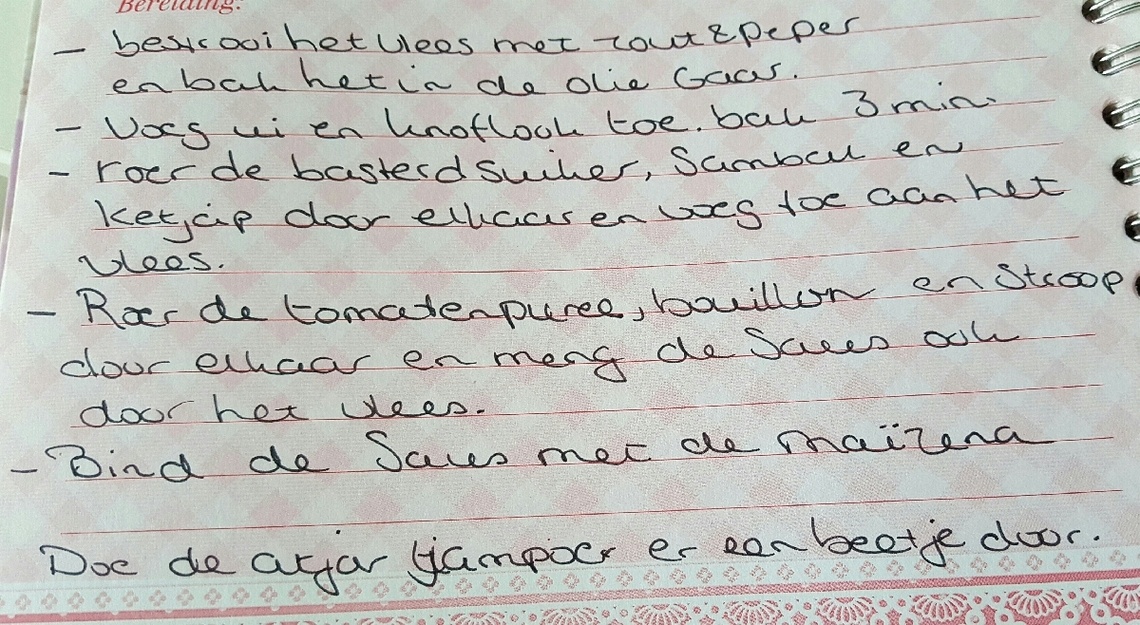 Bereiding:
- bestrooi het vlees met zout & peper
en bak het in de olie Gaar.
- Voeg ui en knoflook toe. bak 3 min.
- roer de basterdsuiker, Sambal en
Ketjap door elkaar en voeg toe aan het
vlees.
- Roer de tomatenpuree, bouillon en Stroop
door elkaar en meng de Saus ook
door het vlees.
- Bind de Saus met de maïzena
Doe de atjar tjampoer er een beetje door.